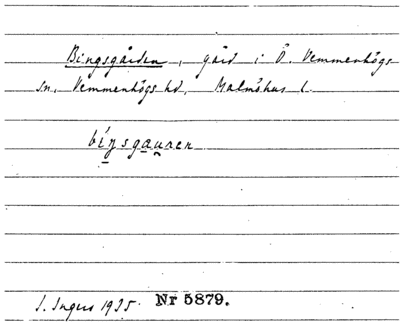 Bingsgården, gård i Ö. Vemmenhögs
sn, Vemmenhögs hd, Malmöhus l.
bíŋsgauren
I. Ingers 1935. Nr 5879.